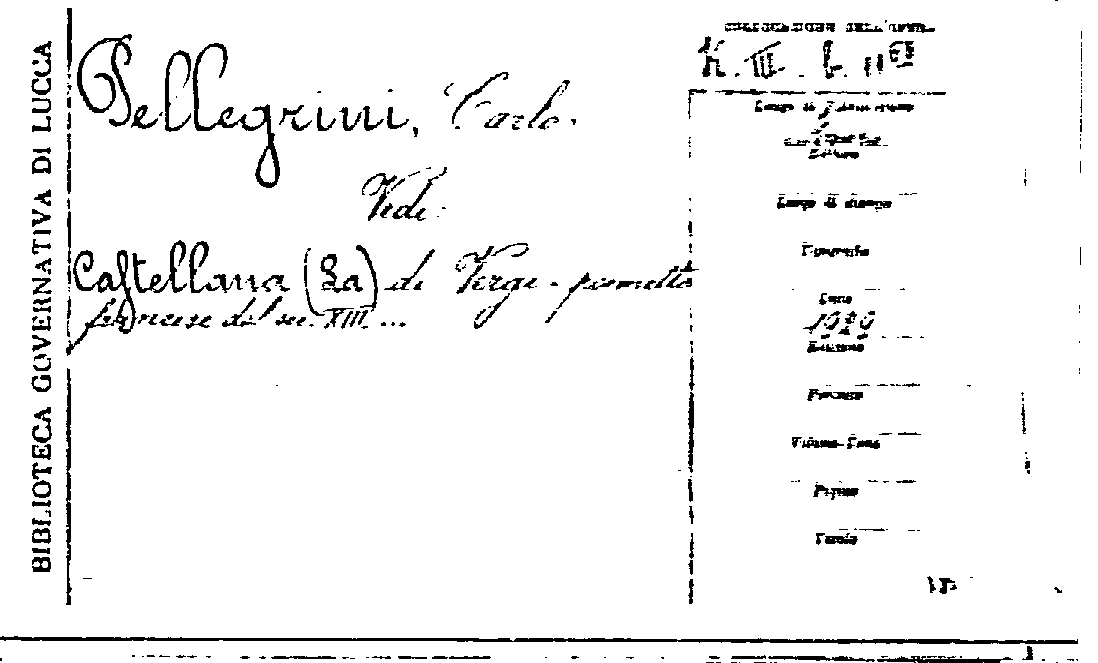 BIBLIOTECA GOVERNATIVA DI LUCCA
Pellegrini, Carlo.
Vedi:
Castellana (La) di Vergi - poemetto
francese del sec. XIII....
COLLOCAZIONE DELL'OPERA
K. III. b.
Luogo di
Editore
Luogo di stampa
Tipografia
Anno
1929
Edizione
Formato
Volume-Tomo
Pagine
Tavole